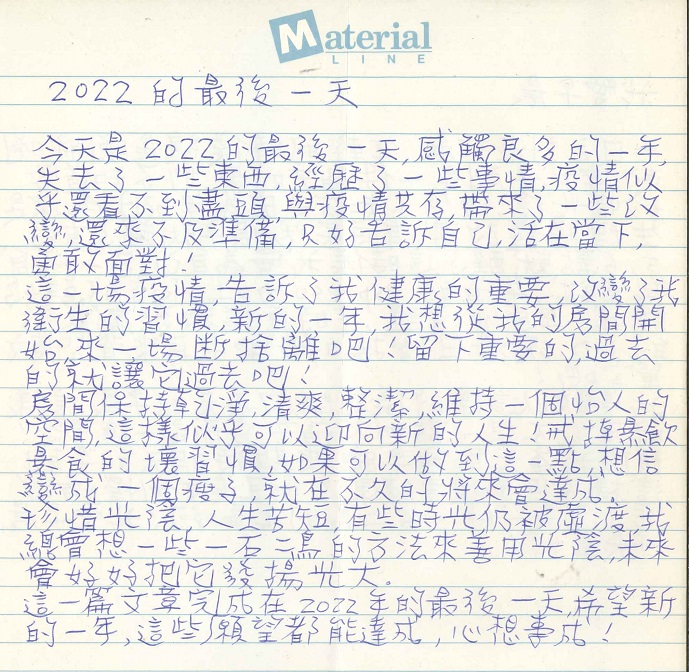 Material
LINE
2022的最後一天
今天是2022的最後一天,感觸良多的一年,
失去了一些東西,經歷了一些事情,疫情似
乎還看不到盡頭,與疫情共存,帶來了一些改
變,還來不及準備,只好告訴自己,活在當下,
勇敢面對!
這一場疫情,告訴了我健康的重要,改變了我
衛生的習慣,新的一年,我想從我的房間開
始來一場斷捨離吧!留下重要的,過去
的就讓它過去吧!
房間保持乾淨,清爽,整潔,維持一個怡人的
空間,這樣似乎可以迎向新的人生!戒掉暴飲
暴食的壞習慣,如果可以做到這一點,想信
變成一個瘦子,就在不久的將來會達成。
珍惜光陰,人生苦短,有些時光仍被虛渡,我
總會想一些一石二鳥的方法來善用光陰,未來
會好好把它發揚光大。
這一篇文章完成在2022年的最後一天,希望新
的一年,這些願望都能達成,心想事成!